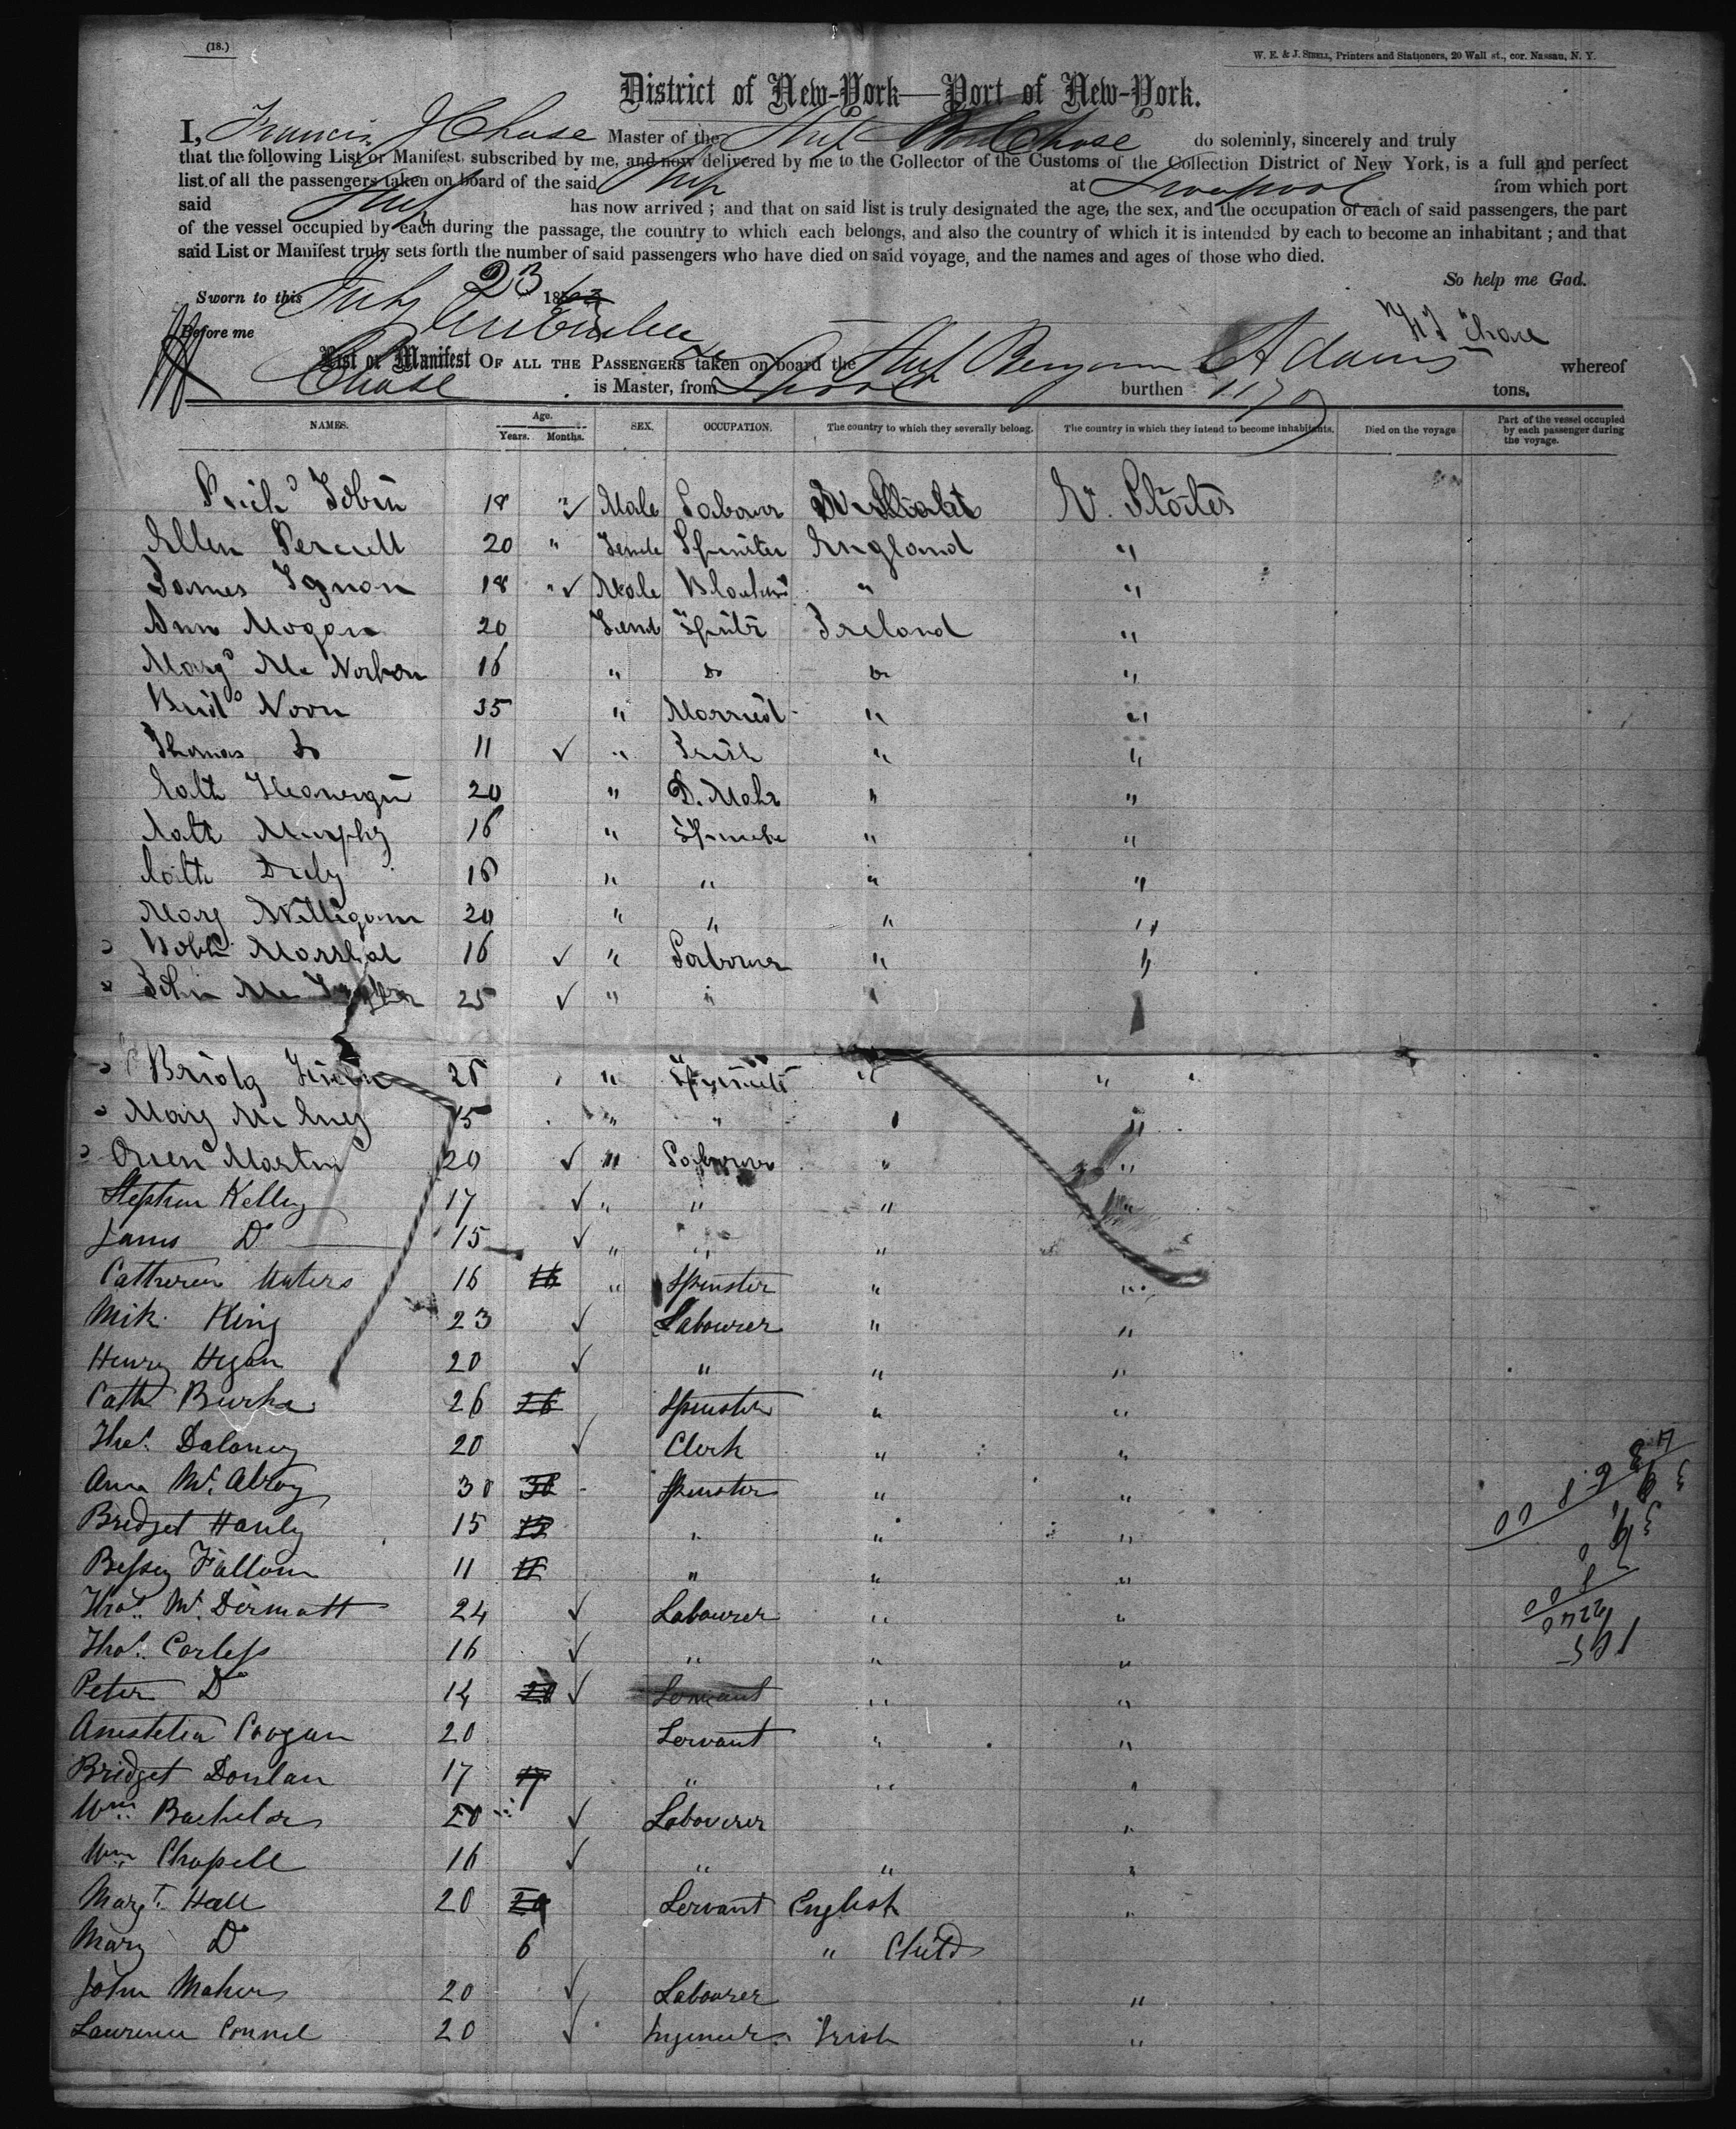 (18.)
W. E. & J. SIBELL, Printers and Stationers, 20 Wall st., cor. Nassau, N. Y.
District of New-York—Port of New-York.
I, Francis J Chase Master of the Ship do solemnly, sincerely and truly
that the following List or Manifest, subscribed by me, and now delivered by me to the Collector of the Customs of the Collection District of New York, is a full and perfect
list of all the passengers taken on board of the said Ship at Liverpool from which port
said Ship has now arrived ; and that on said list is truly designated the age, the sex, and the occupation of each of said passengers, the part
of the vessel occupied by each during the passage, the country to which each belongs, and also the country of which it is intended by each to become an inhabitant ; and that
said List or Manifest truly sets forth the number of said passengers who have died on said voyage, and the names and ages of those who died.
So help me God.
Sworn to this July 23 186
Before me Chase
List or Manifest OF ALL THE PASSENGERS taken on board the Ship Benjamin Adams whereof
Chase is Master, from burthen 1170 tons.
NAMES. Age. Years. Months. SEX. OCCUPATION. The country to which they severally belong. The country in which they intend to become inhabitants. Died on the voyage Part of the vessel occupied by each passenger during the voyage.
Rich^d Tobin 18 " ✓ Male Labourer U. States
Ellen 20 " Female Spinster England "
James 18 " ✓ Male " "
Ann Mogan 20 Female Spinster Ireland "
Marg^t Mc 16 " do do "
Brid^t Noon 35 " Married " "
Thomas Do 11 ✓ " Irish " "
Cath 20 " D. Makr " "
Kate Murphy 16 " Spinster " "
Cath 18 " " " "
Mary Milligan 20 " " " "
Rob^t Marshal 16 ✓ " Labourer " "
John Mc 25 ✓ " " "
Bridg 25 " Spinster " "
Mary Mc 15 " " "
Owen Martin 20 ✓ " Labourer " "
Stephen Kelley 17 ✓ " " " "
James D^o 15 ✓ " " "
Catherin Waters 16 16 " Spinster " "
Mik. King 23 ✓ Labourer " "
Henry Hegan 20 ✓ " " "
Cath Burke 26 26 Spinster " "
Tho^s. Dalaney 20 ✓ Clerk " "
Ann Mc. Alroy 30 30 Spinster " "
Bridget Hanly 15 15 " " "
Bessy Fallom 11 11 " " "
Tho^s. Mc. Dermott 24 ✓ Labourer " "
Tho^s. Corless 16 ✓ " " "
Peter D^o 14 20 ✓ Servant " "
Anestetia Coogan 20 Servant " "
Bridget Donlan 17 17 " " "
Wm. Bachelor 20 ✓ Labourer "
Wm. Chapell 16 ✓ " " "
Marg^t. Hall 20 20 Servant English "
Mary D^o 6 " Child
John Maher 20 ✓ Labourer "
Laurence Connel 20 ✓ Irish "